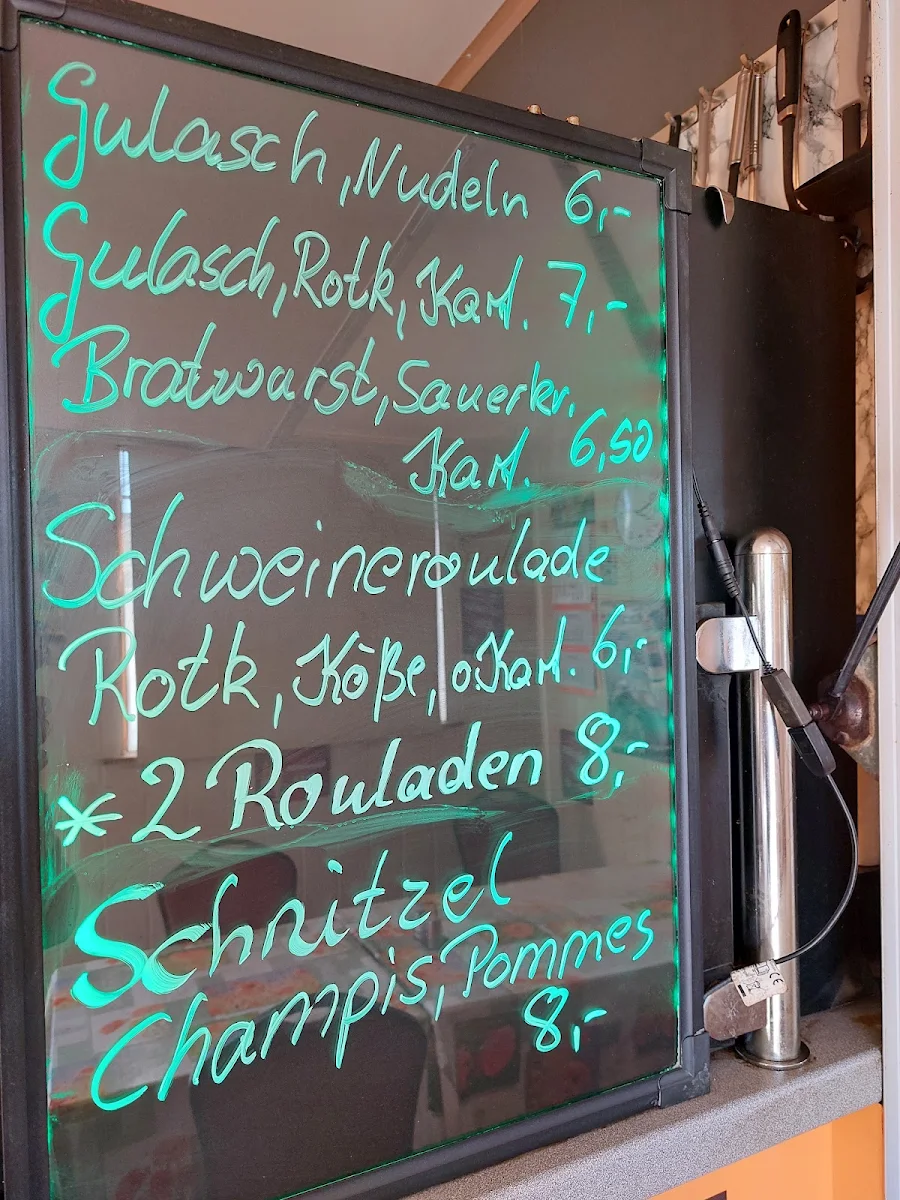 Gulasch, Nudeln 6,-
Gulasch, Rotk, Kart. 7,-
Bratwurst, Sauerkr.
Kart. 6,50
Schweineroulade
Rotk, Köße, o.Kart. 6,-
* 2 Rouladen 8,-
Schnitzel
Champis, Pommes
8,-